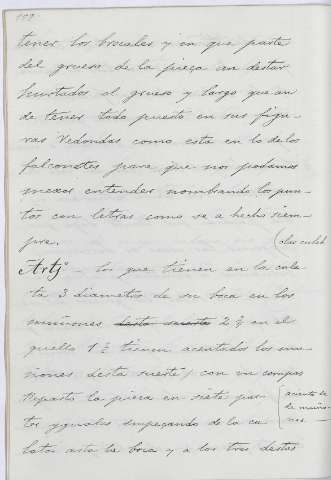 tener los brocales y en que parte
del grueso de la pieça an destar
hurtados al grueso y largo que an
de tener todo puesto en sus figu-
ras Redondas como esta en lo de los
falconetes para que nos podamos
mexor entender nombrando los pun-
tos con letras como se a hecho siem-
pre.
(las culeb
Artjº – los que tienen en la cula-
ta 3 diametros de su boca en los
muñones desta suerte 2 ½ en el
quello 1 ½ tienen asentados los mu-
ñones desta suerte / con un compas
Reparto la pieça en siete par-
asiento de
los muño-
nes. –
tes yguales empeçando de la cu-
lata asta la boca y a los tres destas